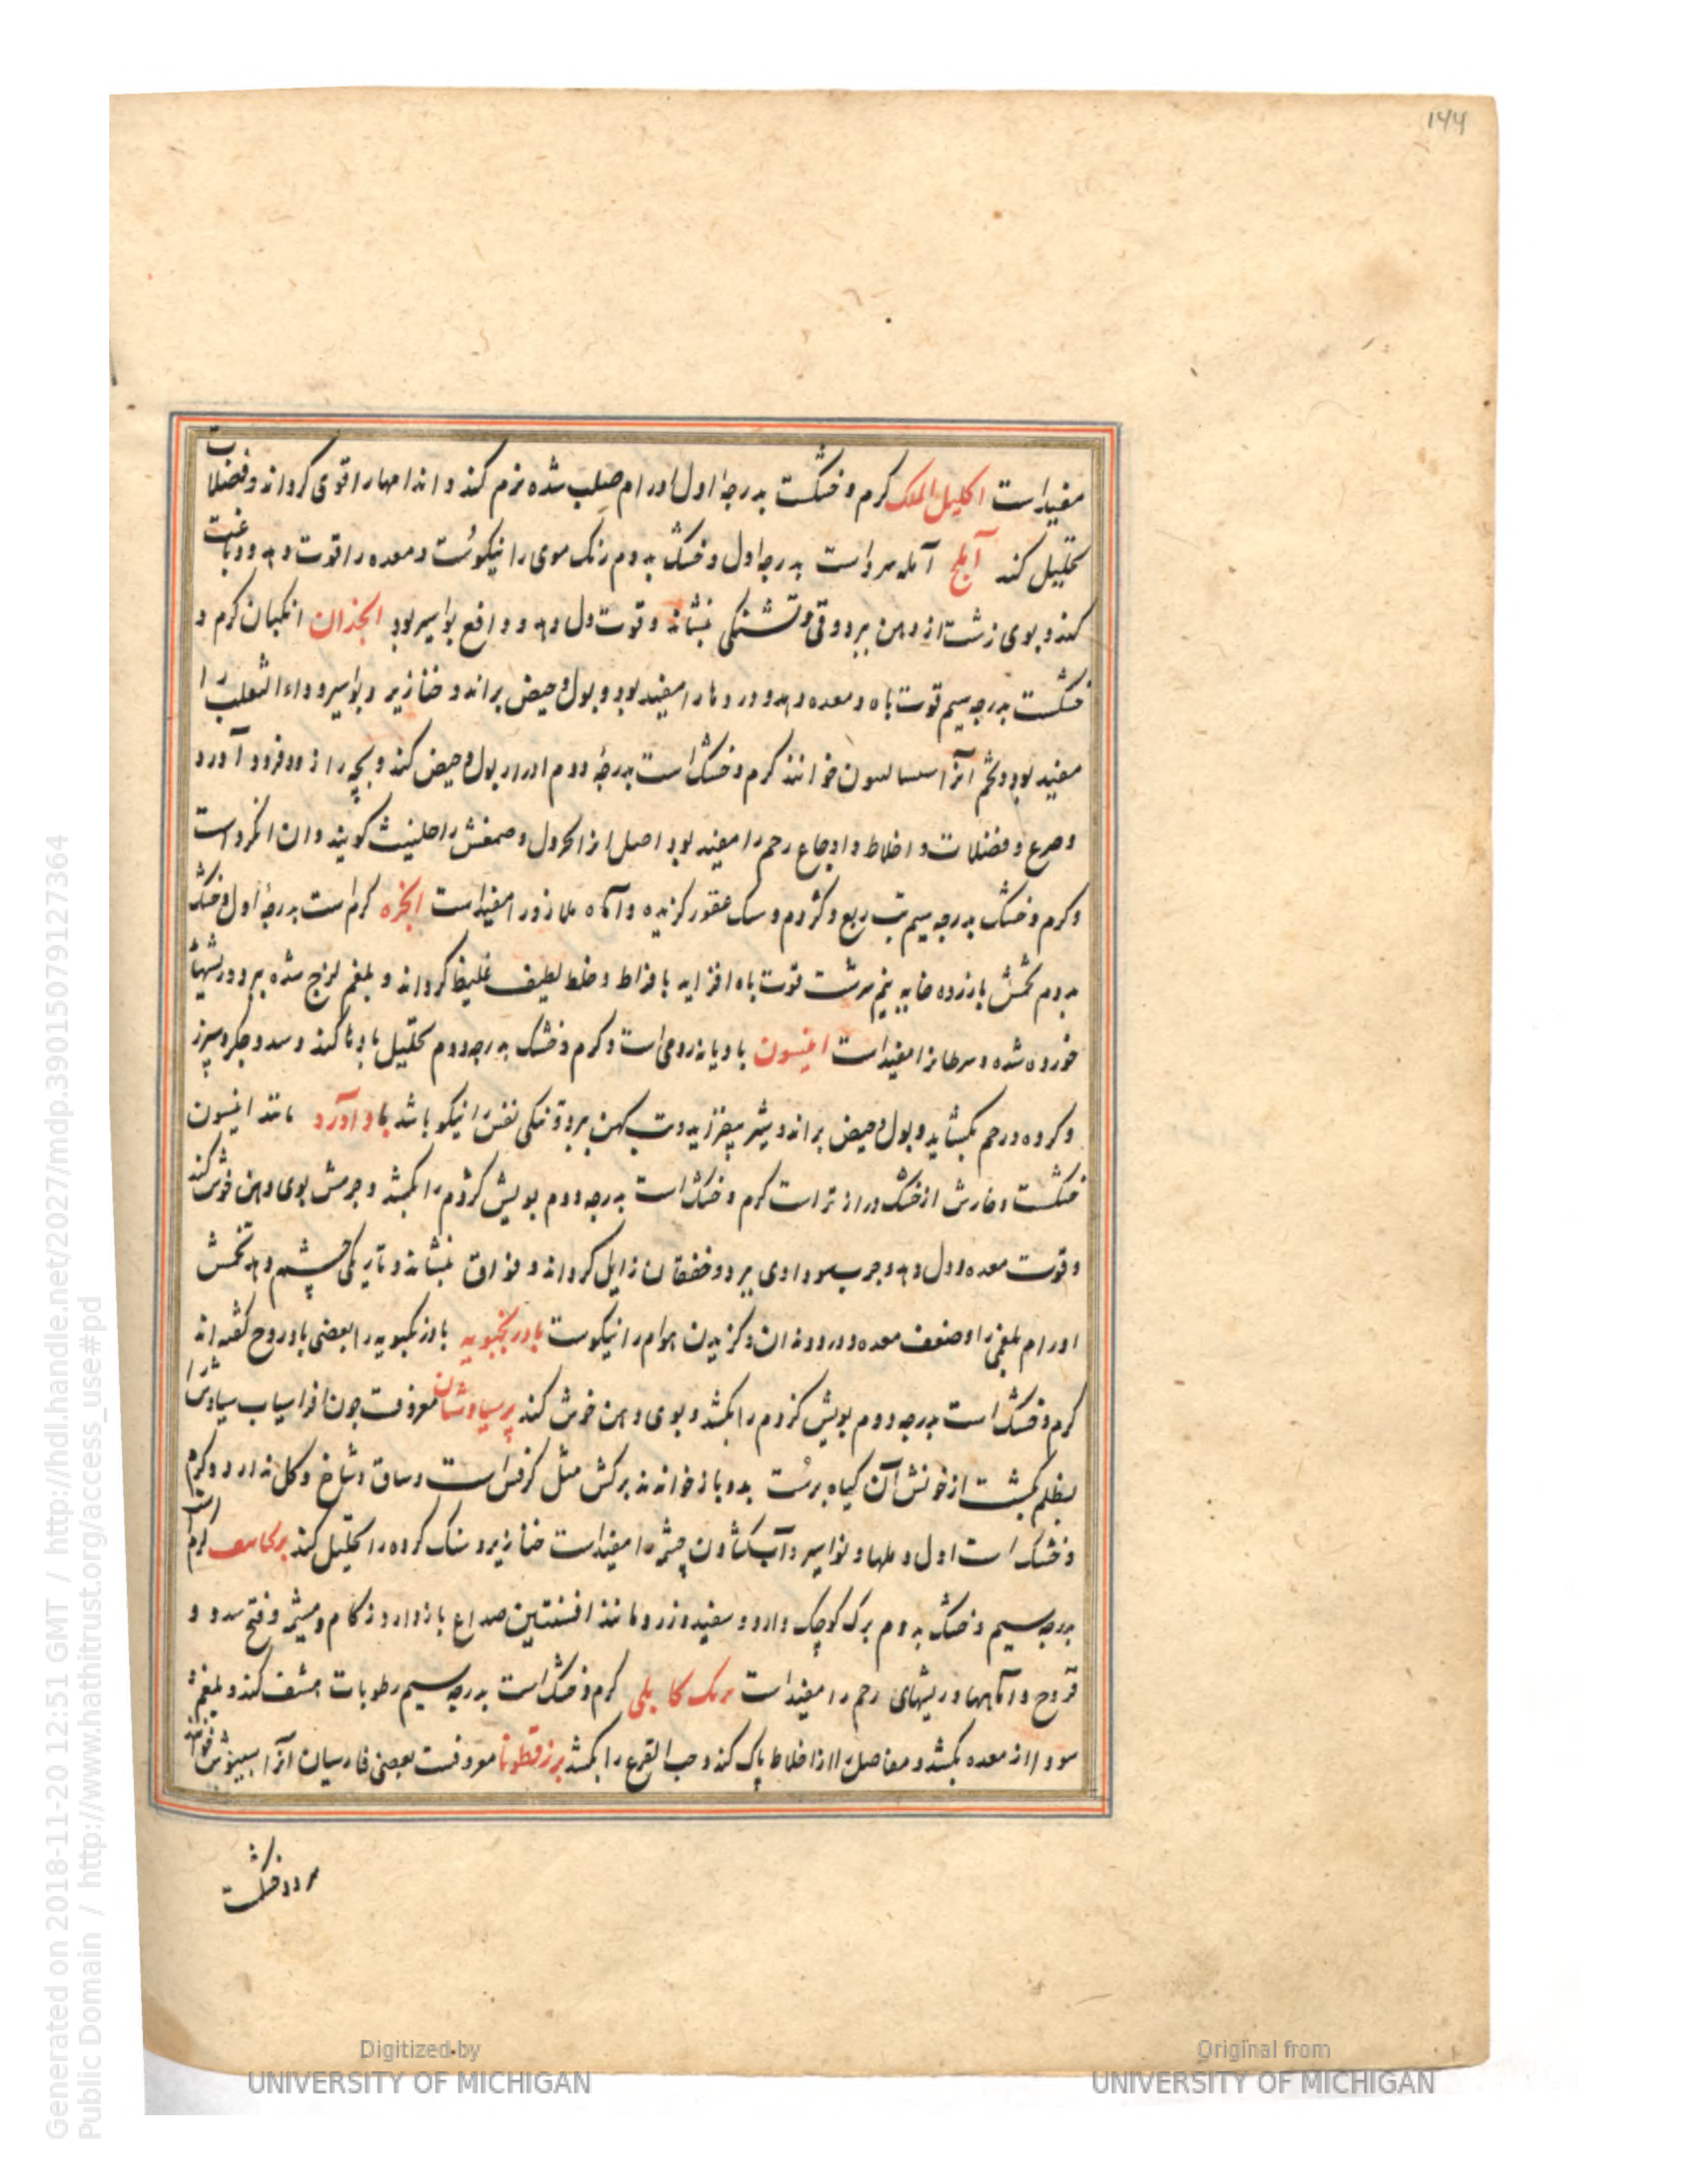 ۱۴۴
مفیداست اکلیل الملک کرم و خشکست بدرجهٔ اول اورام صلب شده نرم کند و اندامها را قوی کرداند و فضلات
تحلیل کند آملج آمله سرداست بدرجهٔ اول و خشک بدوم رنک موی را نیکوست و معده را قوت دهد و دباغت
کند و بوی زشت از دهن ببرد و قی و تشنکی بنشاند و قوت دل دهد و دافع بواسیر بود انجذان انکبان کرم و
خشکست بدرجه سیم قوت باه و معده دهد و دردها را مفید بود و بول و حیض براند و خنازیر و بواسیر و داء الثعلب را
مفید بود و تخم آنرا خوانند کرم و خشک است بدرجهٔ دوم ادرار بول و حیض کند و بچه را زود فرود آورد
و صرع و فضلات و اخلاط و اوجاع رحم را مفید بود اصل انرا محروث و صمغش را حلتیت کویند و ان انکزد است
و کرم و خشک بدرجه سیم تب ربع و کژدم و سک عقور کزیده و مفیداست انجره کرم است بدرجهٔ اول و خشک
بدوم تخمش بازرده خایه نیم برشت قوت باه افزاید بافراط و خلط لطیف غلیظ کرداند و بلغم لزج شده ببرد و ریشهاء
خورده شده و سرطانرا مفیداست انیسون بادیانه رومی است و کرم و خشک بدرجه دوم تحلیل بادها کند و سدد جکر و سپرز
و کرده و رحم بکشاید و بول و حیض براند و شیر بیفزاید و تب کهن ببرد و تنکی نفس را نیکو باشد بادآورد مانند انیسون
خشکست و خارش از خشک درازتر است کرم و خشک است بدرجه دوم بویش کژدم را بکشد و جرمش بوی دهن خوش کند
و قوت معده و دل دهد و جرب سوداوی ببرد و خفقان زایل کرداند و فواق بنشاند و تاریکی چشم دهد تخمش
اورام بلغمی را و ضعف معده و درد دندان و کزیدن هوام را نیکوست بادرنجبویه بادرنکبویه را بعضی بادروج کفته اند
کرم و خشک است بدرجه دوم بویش کژدم را بکشد و بوی دهن خوش کند پرسیاوشان معروفست چون افراسیاب سیاوش را
بظلم بکشت از خونش آن کیاه برست بدو باز خواندند برکش مثل کرفس است و ساق و شاخ و کل ندارد و کرم
و خشک است اول و ملها و نواسیر و آب کشادن چشم را مفیداست خنازیر و سنک کرده را تحلیل کند برنجاسف کرم است
بدرجه سیم و خشک بدوم برک کوچک دارد و سفید و زرد و مانند افسنتین صداع بازدارد و زکام و میشمه و فتح سدد و
قروح و و ریشهای رحم را مفیداست برنک کابلی کرم و خشک است بدرجه سیم رطوبات منشف کند و بلغم و
سودا از معده بکشد و مفاصل را از اخلاط پاک کند و حب القرع را بکشد بزرقطونا معروفست بعضی فارسیان آنرا اسبیوش خوانند
سرد و خشکست
Digitized by
UNIVERSITY OF MICHIGAN
Original from
UNIVERSITY OF MICHIGAN
Generated on 2018-11-20 12:51 GMT / http://hdl.handle.net/2027/mdp.39015079127364
Public Domain / http://www.hathitrust.org/access_use#pd